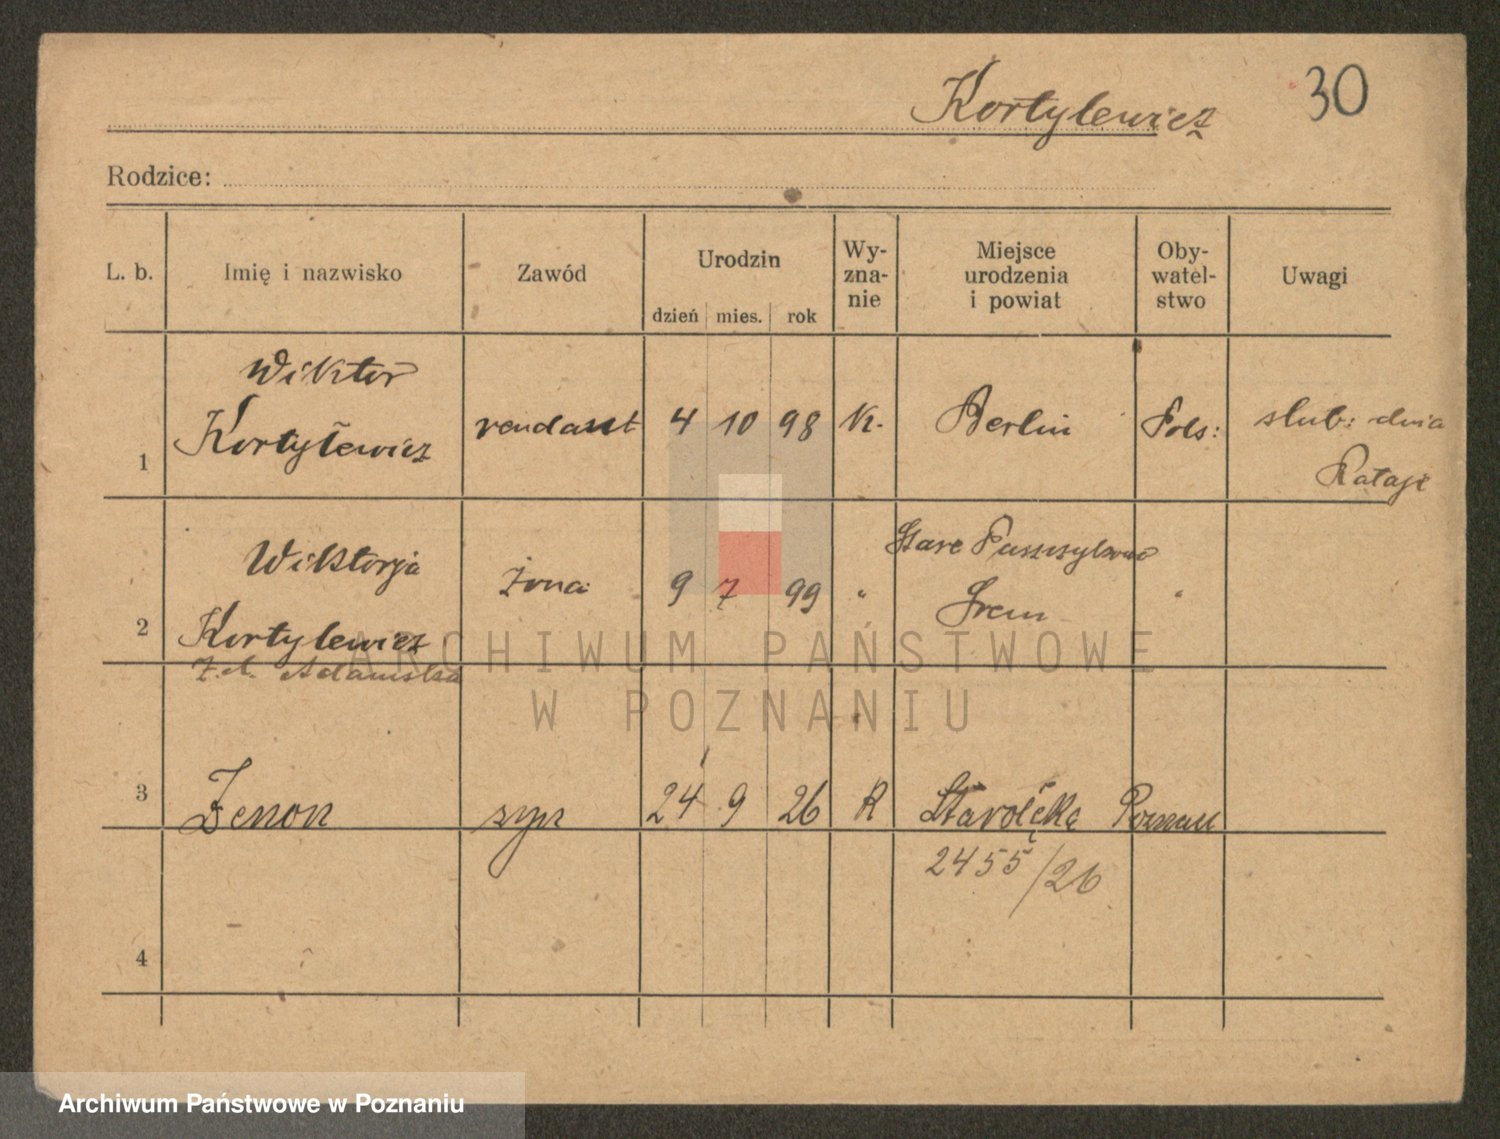 Kortylewicz 30
Rodzice:
L. b. Imię i nazwisko Zawód Urodzin Wy- Miejsce Oby- Uwagi
zna- urodzenia watel-
dzień mies. rok nie i powiat stwo
Wiktor
1 Kortylewicz rendant 4 10 98 K. Berlin Pols: slub: dnia
Rataje
Wiktorja żona 9 7 99 " Stare "
2 Kortylewicz Śrem
z.d. Adamska
ARCHIWUM PAŃSTWOWE
W POZNANIU
3 Zenon syn 24 9 26 R Starołęka Poznań
2455/26
4
Archiwum Państwowe w Poznaniu